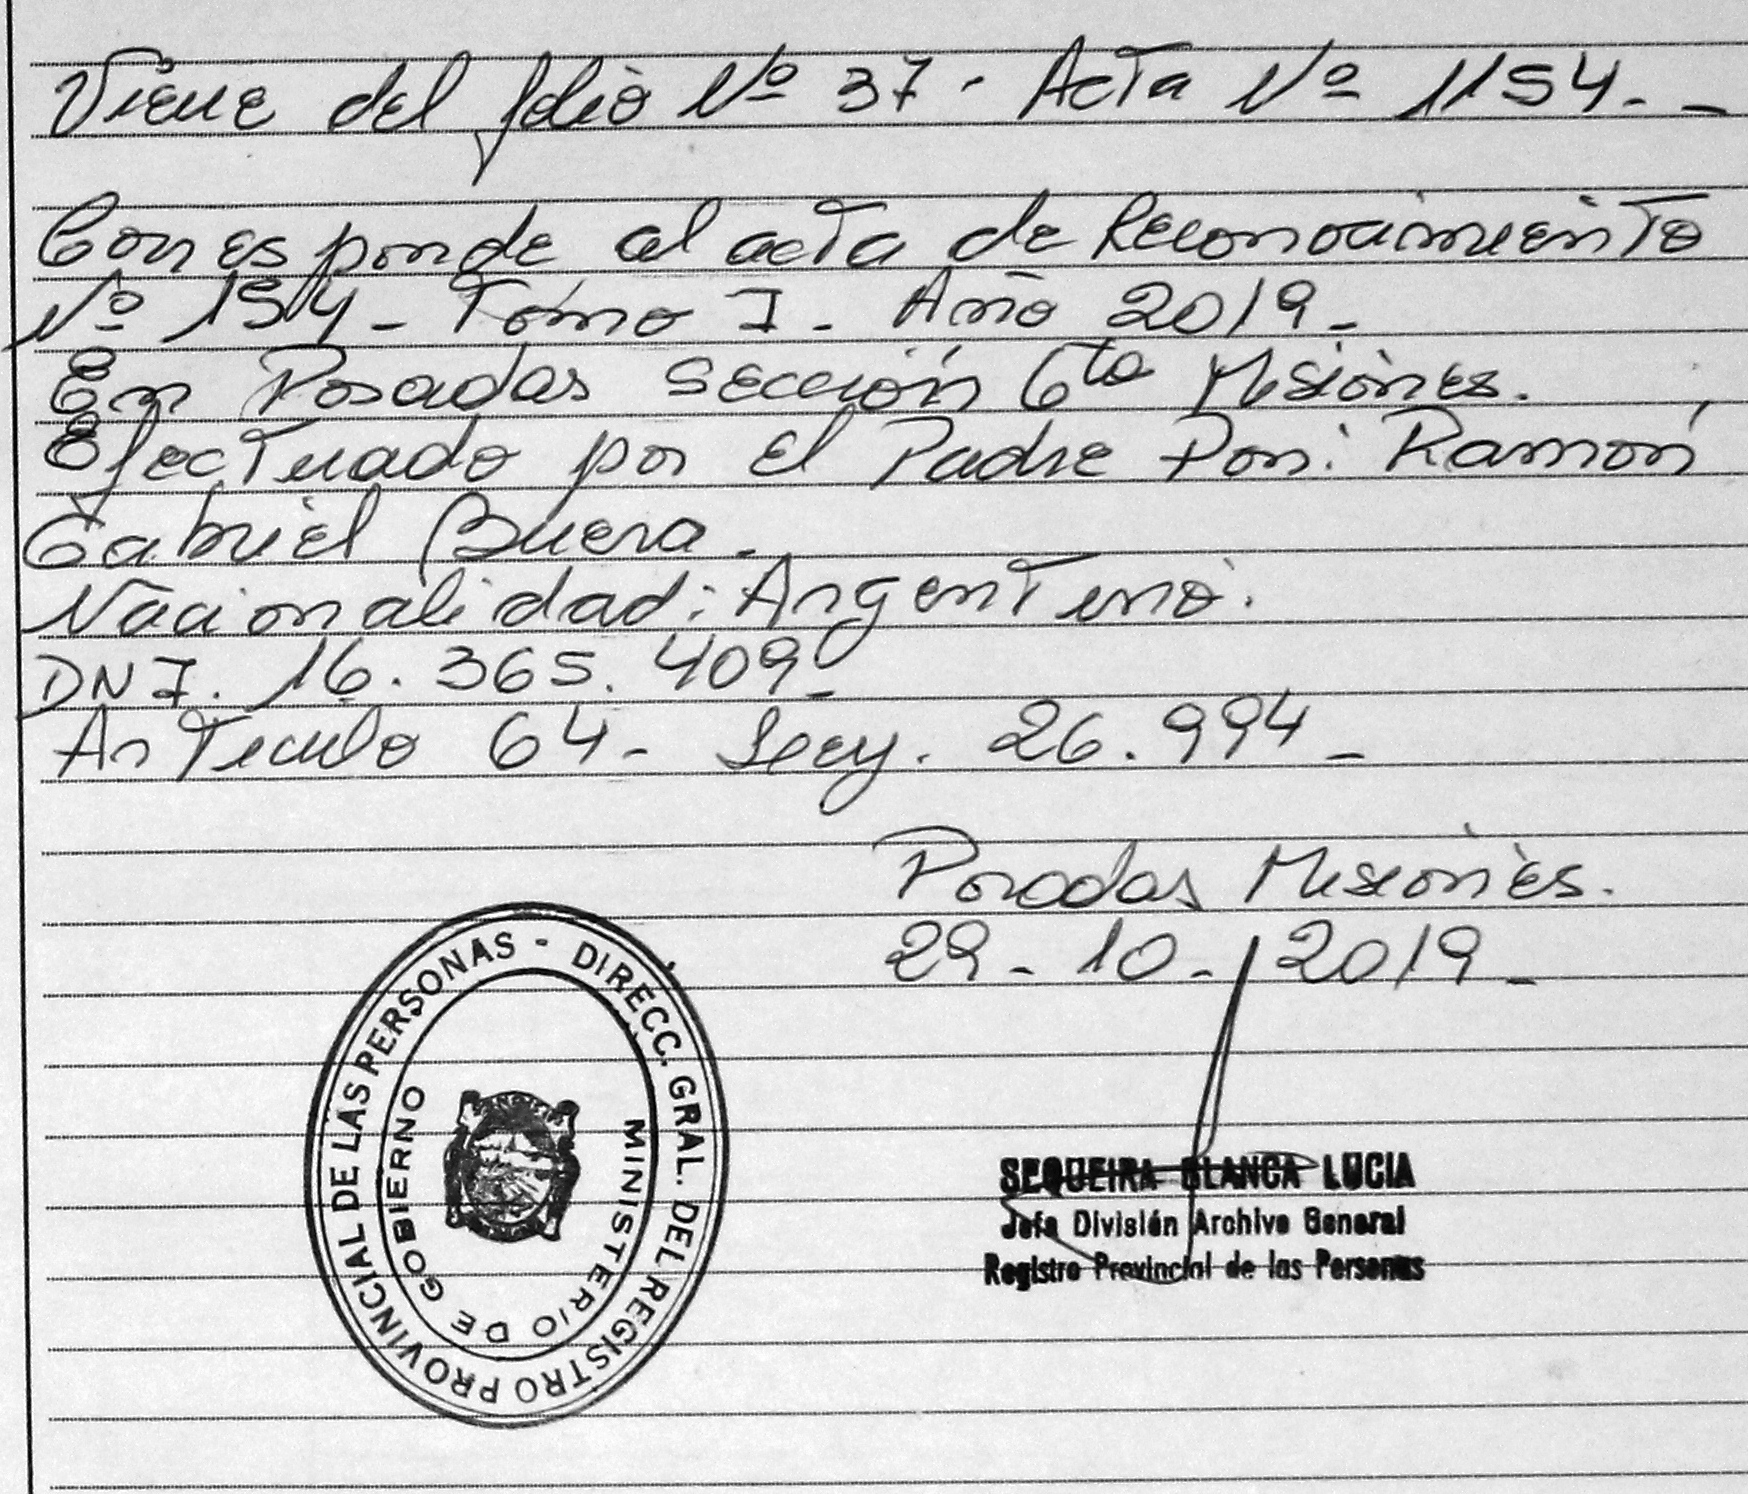 Viene del folio Nº 37. Acta Nº 1154. -
Corresponde al acta de Reconocimiento
Nº 154 - Tomo I. Año 2019 -
En Posadas Sección 6ta Misiones.
Efectuado por el Padre Don: Ramón
Gabriel Buera.
Nacionalidad: Argentino.
DNI. 16.365.409 -
Artículo 64 - Ley. 26.994 -
Posadas Misiones.
29 - 10 - 2019 -
DIRECC. GRAL. DEL REGISTRO PROVINCIAL DE LAS PERSONAS -
MINISTERIO DE GOBIERNO
SEQUEIRA BLANCA LUCIA
Jefa División Archivo General
Registro Provincial de las Personas